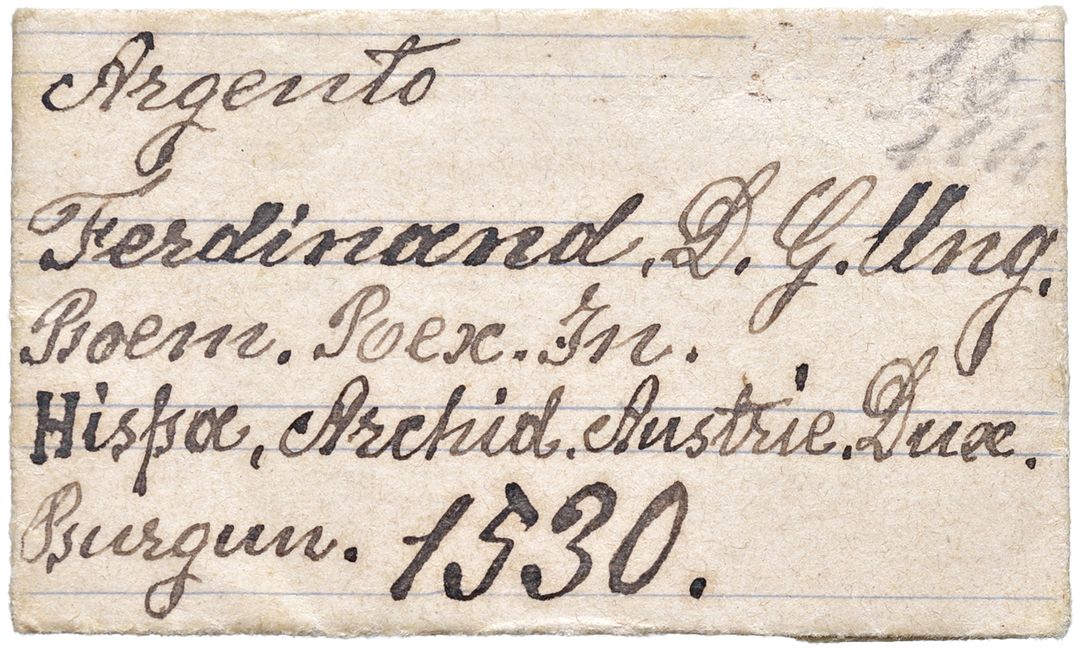 Argento
Ferdinand. D. G. Ung.
Boem. Roex. In.
Hispa, Archid. Austrie. Dux.
Burgun. 1530.